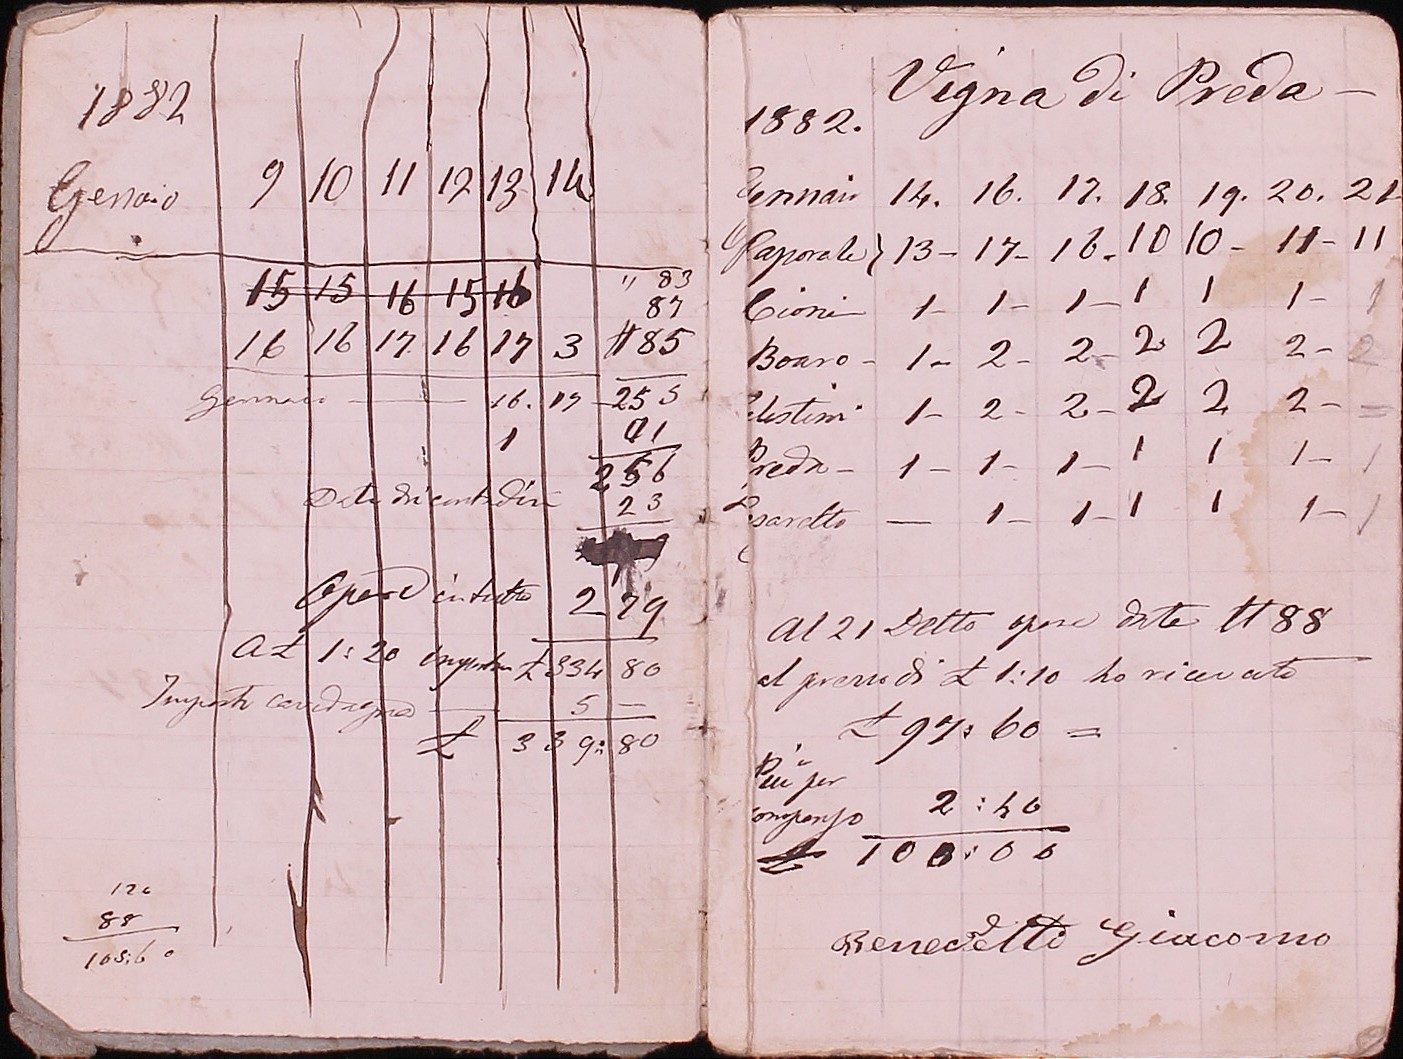 1882
Gennaio 9 10 11 12 13 14
15 15 16 15 16 " 83
87
16 16 17 16 17 3 # 85
Gennaio 16. 17 255
1 1
256
23
Opere in tutto 279
A £ 1:20 £ 334 80
Importo 5 —
£ 339:80
120
88
105:60
Vigna di Preda —
1882.
Gennaio 14. 16. 17. 18. 19. 20. 21
Caporale } 13 - 17 - 16 - 10 10 - 11 - 11
Cioni 1 - 1 - 1 - 1 1 1 - 1
Boaro - 1 - 2 - 2 - 2 2 2 - 2
Celestini 1 - 2 - 2 - 2 2 2 - =
Preda - 1 - 1 - 1 - 1 1 1 - 1
— 1 - 1 - 1 1 1 - 1
Al 21 Detto opere date # 88
al prezzo di £ 1:10 ho ricevuto
£ 97:60 =
Più per
compenso 2:40
£ 100:00
Benedetti Giacomo